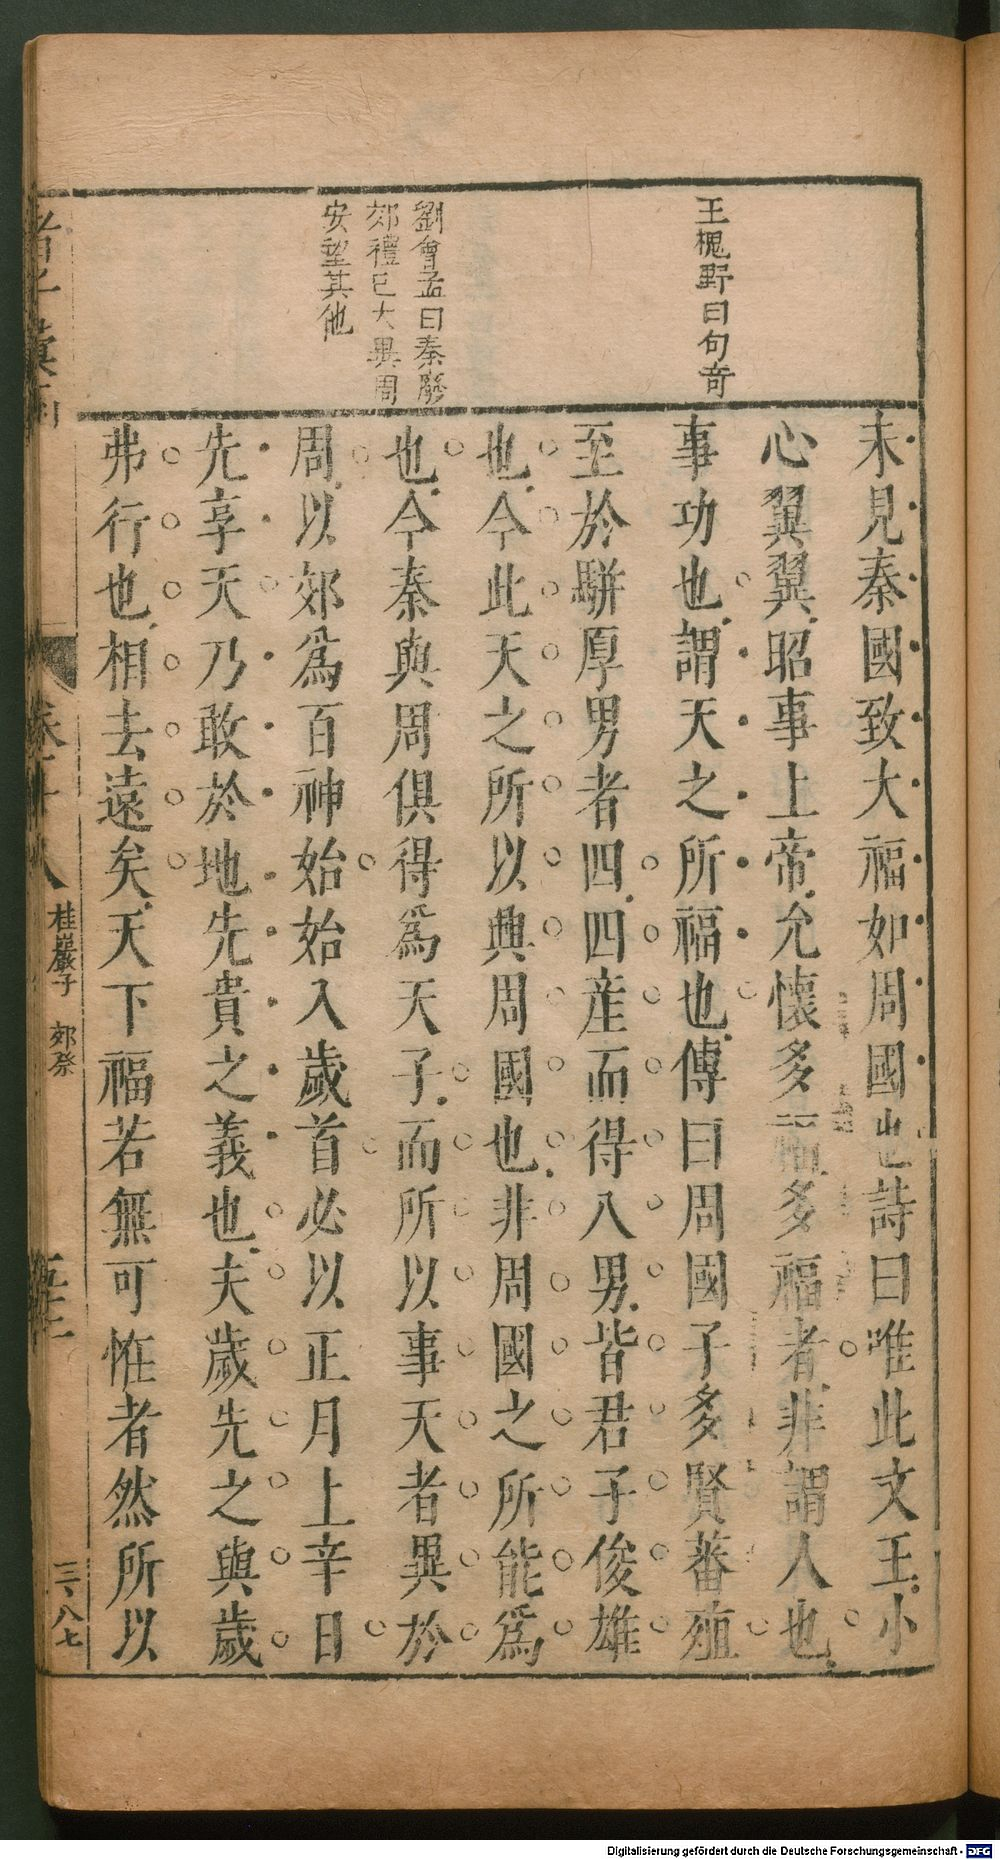 王槐野曰句奇
劉會孟曰秦廢
郊禮已大異周
安望其他
未見秦國致大福如周國也詩曰唯此文王小
心翼翼昭事上帝允懷多福多福者非謂人也
事功也謂天之所福也傳曰周國子多賢蕃殖
至於駢厚男者四四產而得八男皆君子俊雄
也今此天之所以興周國也非周國之所能爲
也今秦與周俱得爲天子而所以事天者異於
周以郊爲百神始始入歲首必以正月上辛日
先享天乃敢於地先貴之義也夫歲先之與歲
弗行也相去遠矣天下福若無可恠者然所以
桂巖子 郊祭
三八七
Digitalisierung gefördert durch die Deutsche Forschungsgemeinschaft - DFG